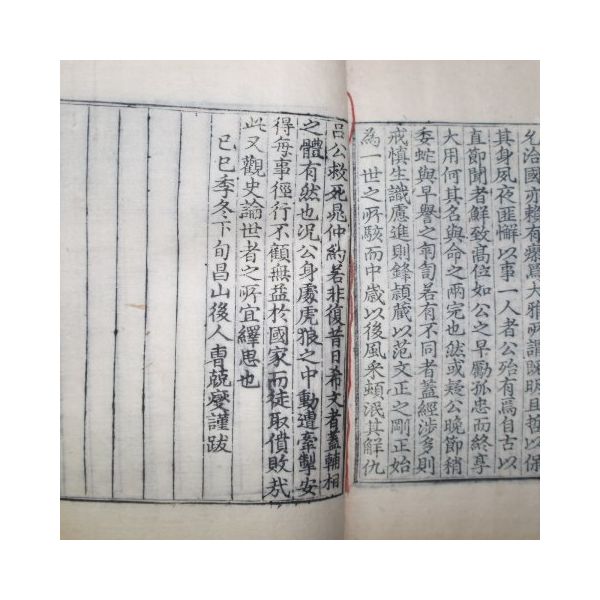 允治國亦賴有瘳焉大雅所謂旣明且哲以保
其身夙夜匪懈以事一人者公殆有焉自古以
直節聞者鮮致高位如公之早勵孤忠而終享
大用何其名與命之兩完也然或疑公晩節稍
委蛇與早譽之訇訇若有不同者蓋經涉多則
戒愼生識慮進則鋒穎藏以范文正之剛正始
為一世之所駭而中歲以後風釆頗泯其解仇
呂公救死晁仲約若非復昔日希文者蓋輔相
之體有然也況公身處虎狼之中動遭牽掣安
得每事徑行不顧無益於國家而徒取僨敗哉
此又觀史論世者之所宜繹思也
己巳季冬下旬昌山後人曺兢燮謹跋